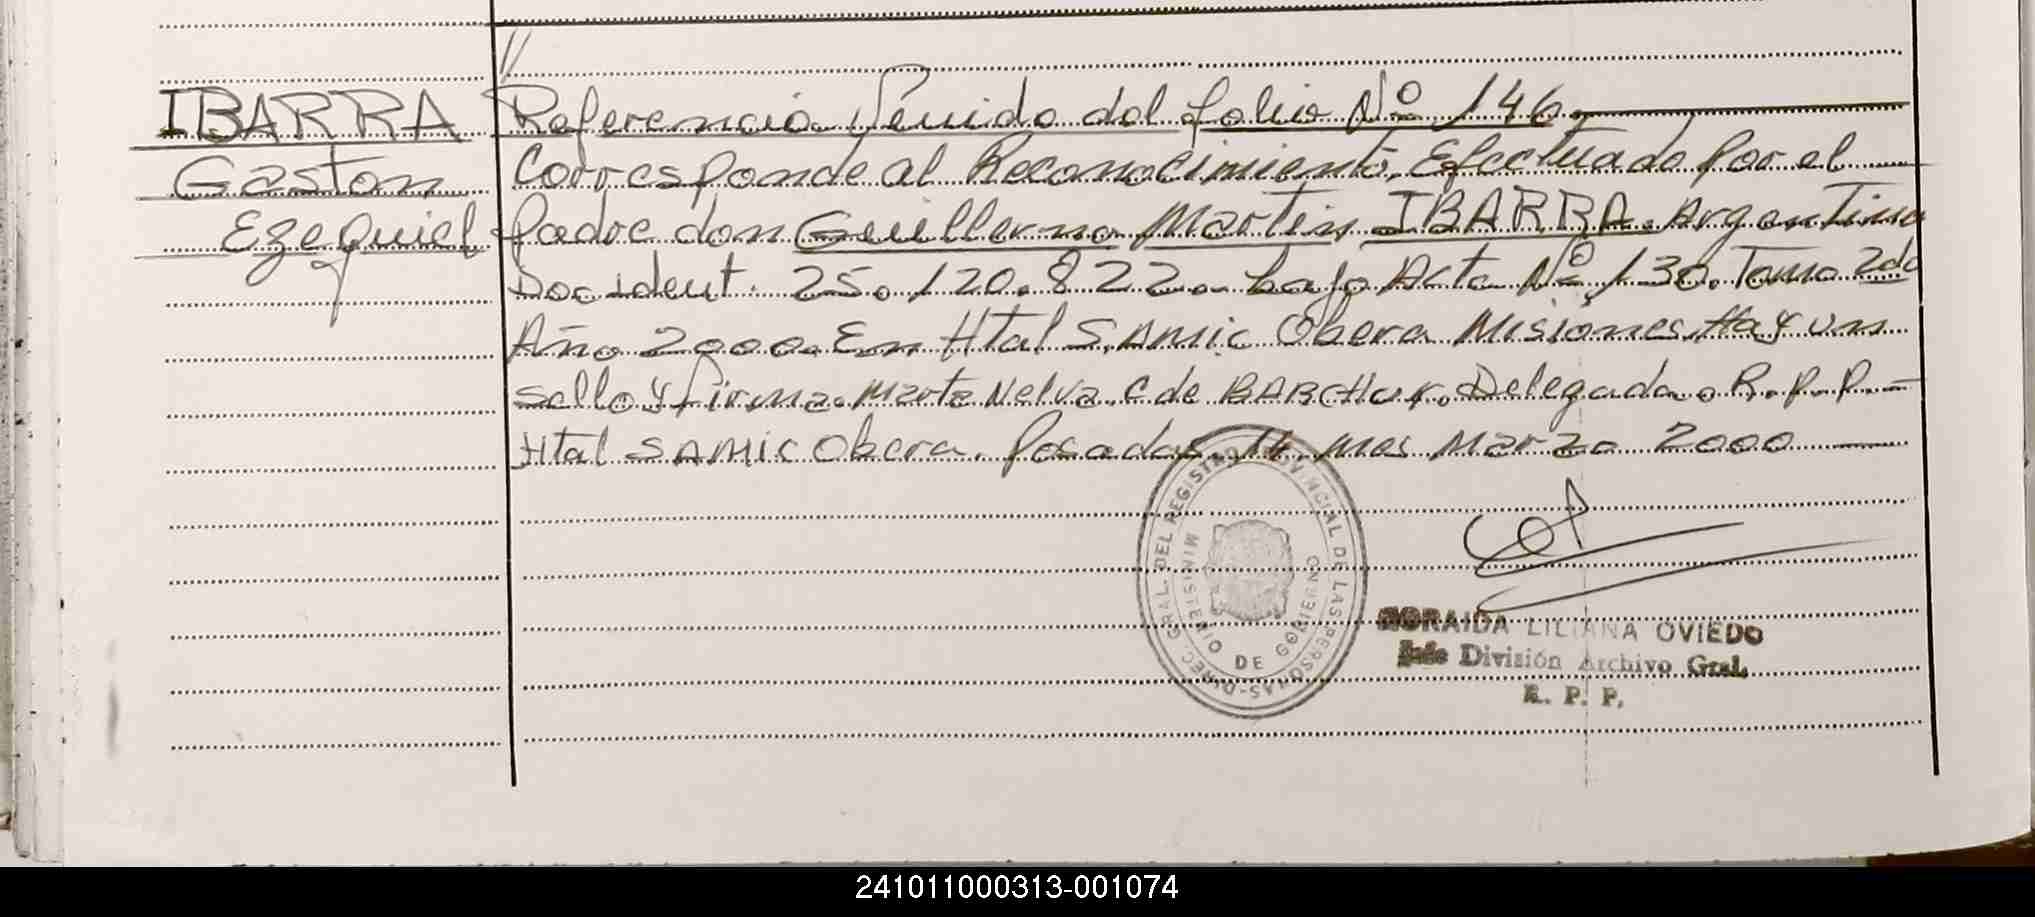 IBARRA
Gaston
Ezequiel
//
Referencia Venido del folio Nº 146.
Corresponde al Reconocimiento, Efectuado por el
padre don Guillermo Martin IBARRA. Argentino
Doc ident. 25.120.822. bajo Acta Nº 130. Tomo 2do
Año 2000. En Htal SAMIC Obera Misiones. Hay un
sello y firma. Marta Nelva C de Delegada. R.P.P.-
Htal SAMIC Obera. Posadas, 14 mes Marzo 2000
DIREC. GRAL. DEL REGISTRO PROVINCIAL DE LAS PERSONAS-
MINISTERIO DE GOBIERNO
ZORAIDA LILIANA OVIEDO
Jefe División Archivo Gral.
R. P. P.
241011000313-001074